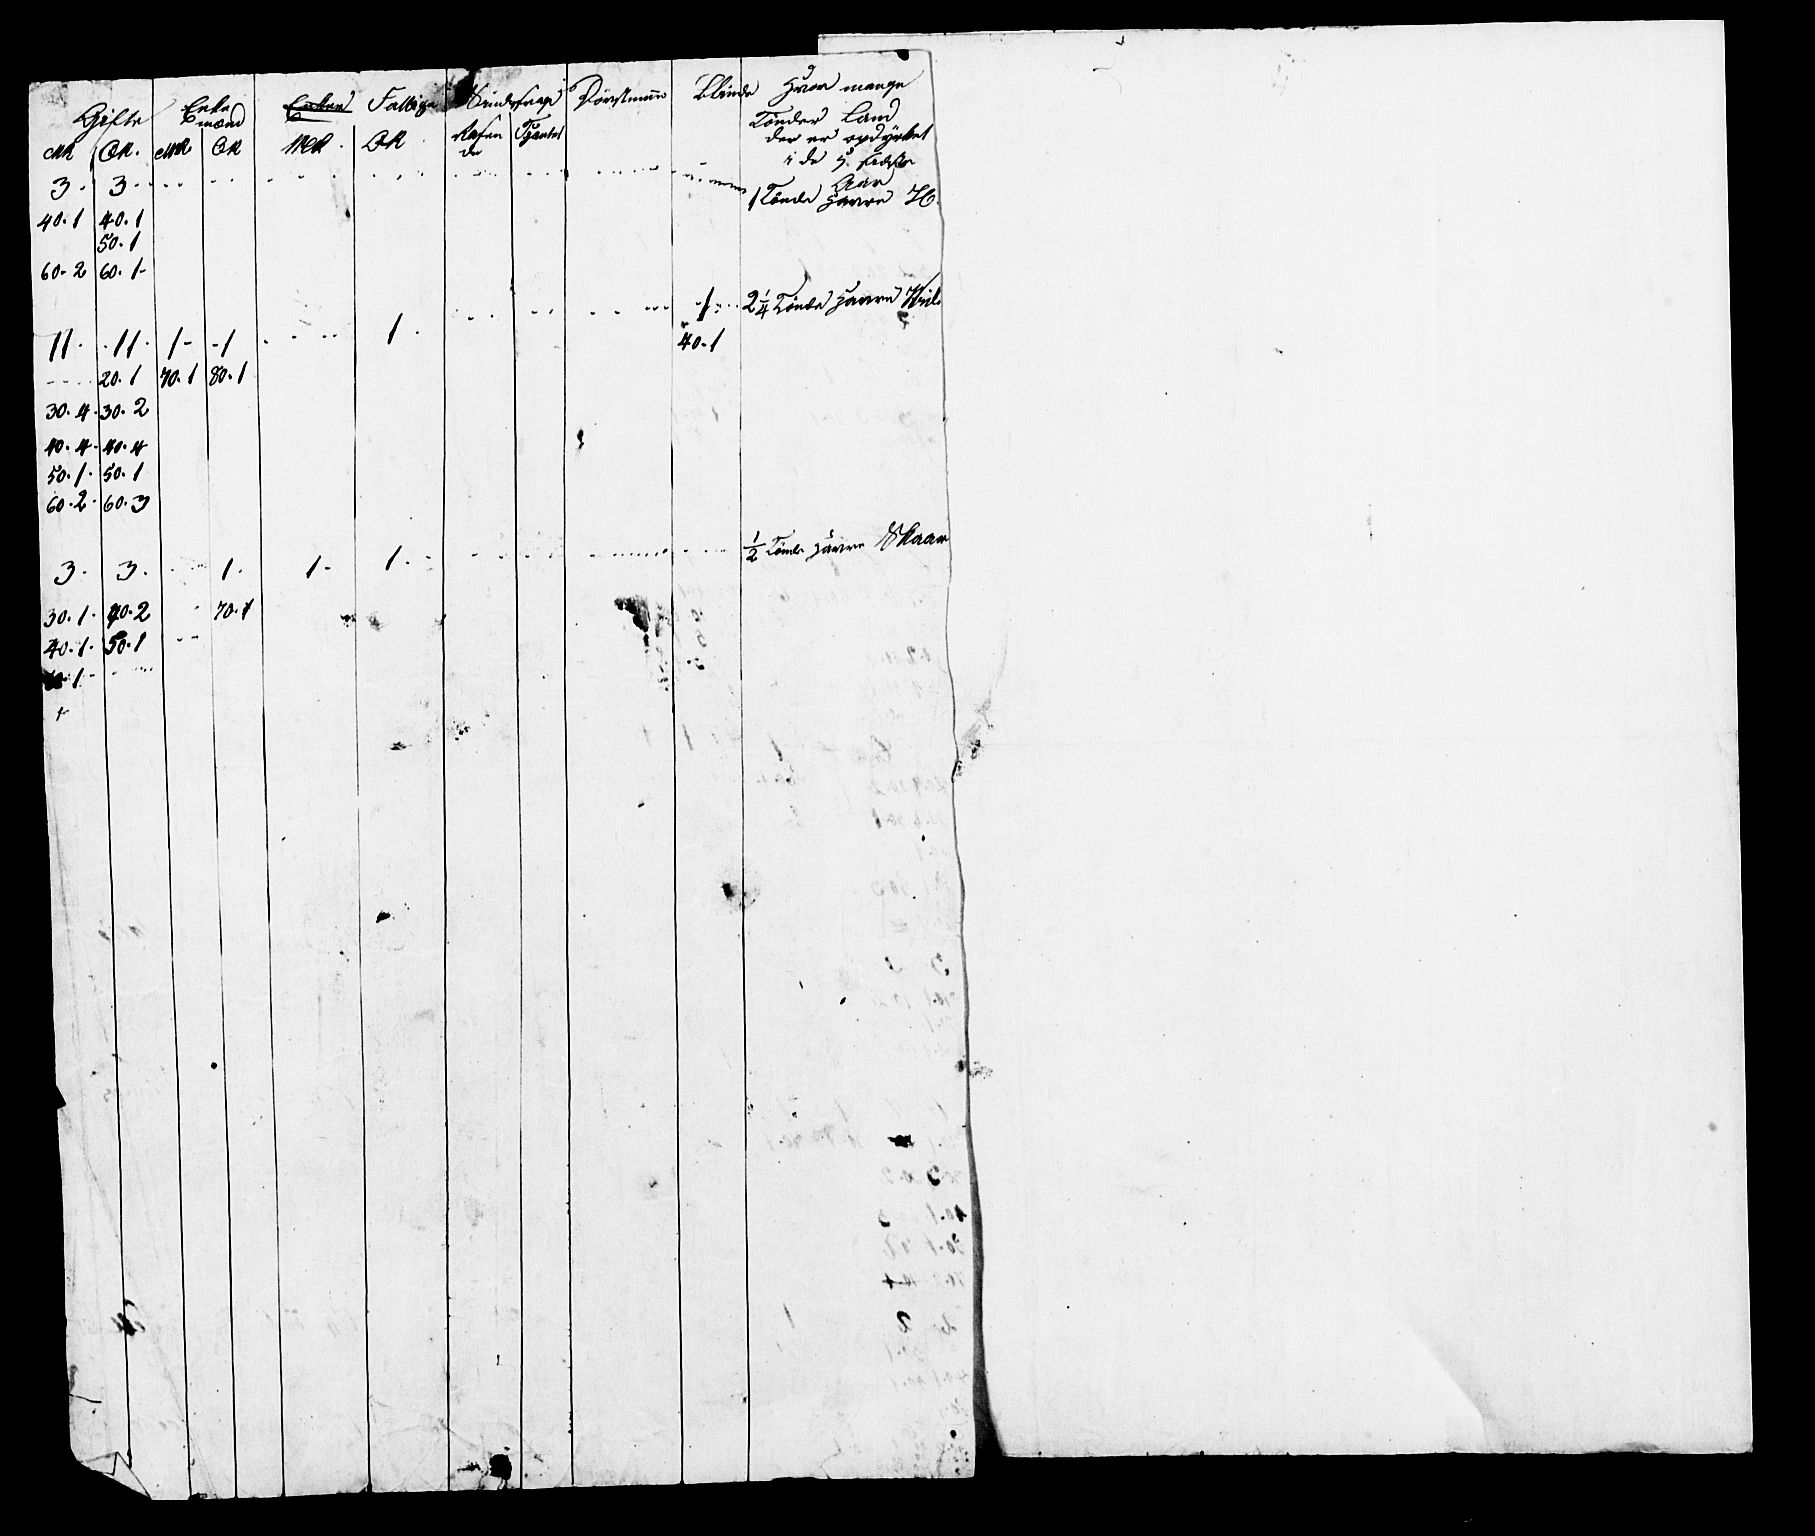 Gifte Enke mænd Enker Fattige Sindssvage Døvstumme Blinde Hvor mange
Tønder Land
der er opdyrket
i de 5 sidste
Aar
MK QK. MK QK MK. QK Rasen de Tjantet
3. 3. 1 Tønde Havre H.
40.1 40.1
50.1
60.2 60.1
1 2 1/4 Tønde Havre
11. 11. 1 1 1. 40.1
20.1 70.1 80.1
30.4. 30.2
40.4. 40.4
50.1. 50.1
60.2. 60.3
1/2 Tønde Havre Skaar
3. 3. 1. 1 1.
30.1. 40.2 70.1
40.1. 50.1
60.1